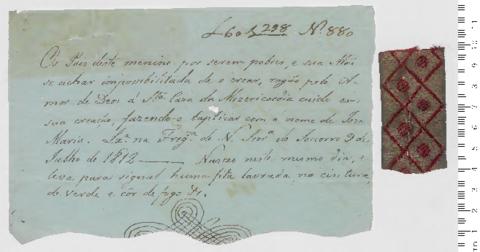 L 60 f 298 Nº. 880
Os Pais deste menino por serem pobres, e sua Mãi
se achar impossibilitada de o crear, rogão pelo A-
mor de Deos á Stª. Caza da Mizericordia cuide em
sua creação, fazendo-o baptizar com o nome de Joze
Maria. Lxª. na Fregª. de N. Snrª. do Socorro 9 de
Julho de 1812 Nasceo neste mesmo dia, e
leva para signal huma fita lavrada na cintura,
de verde e côr de fogo &.